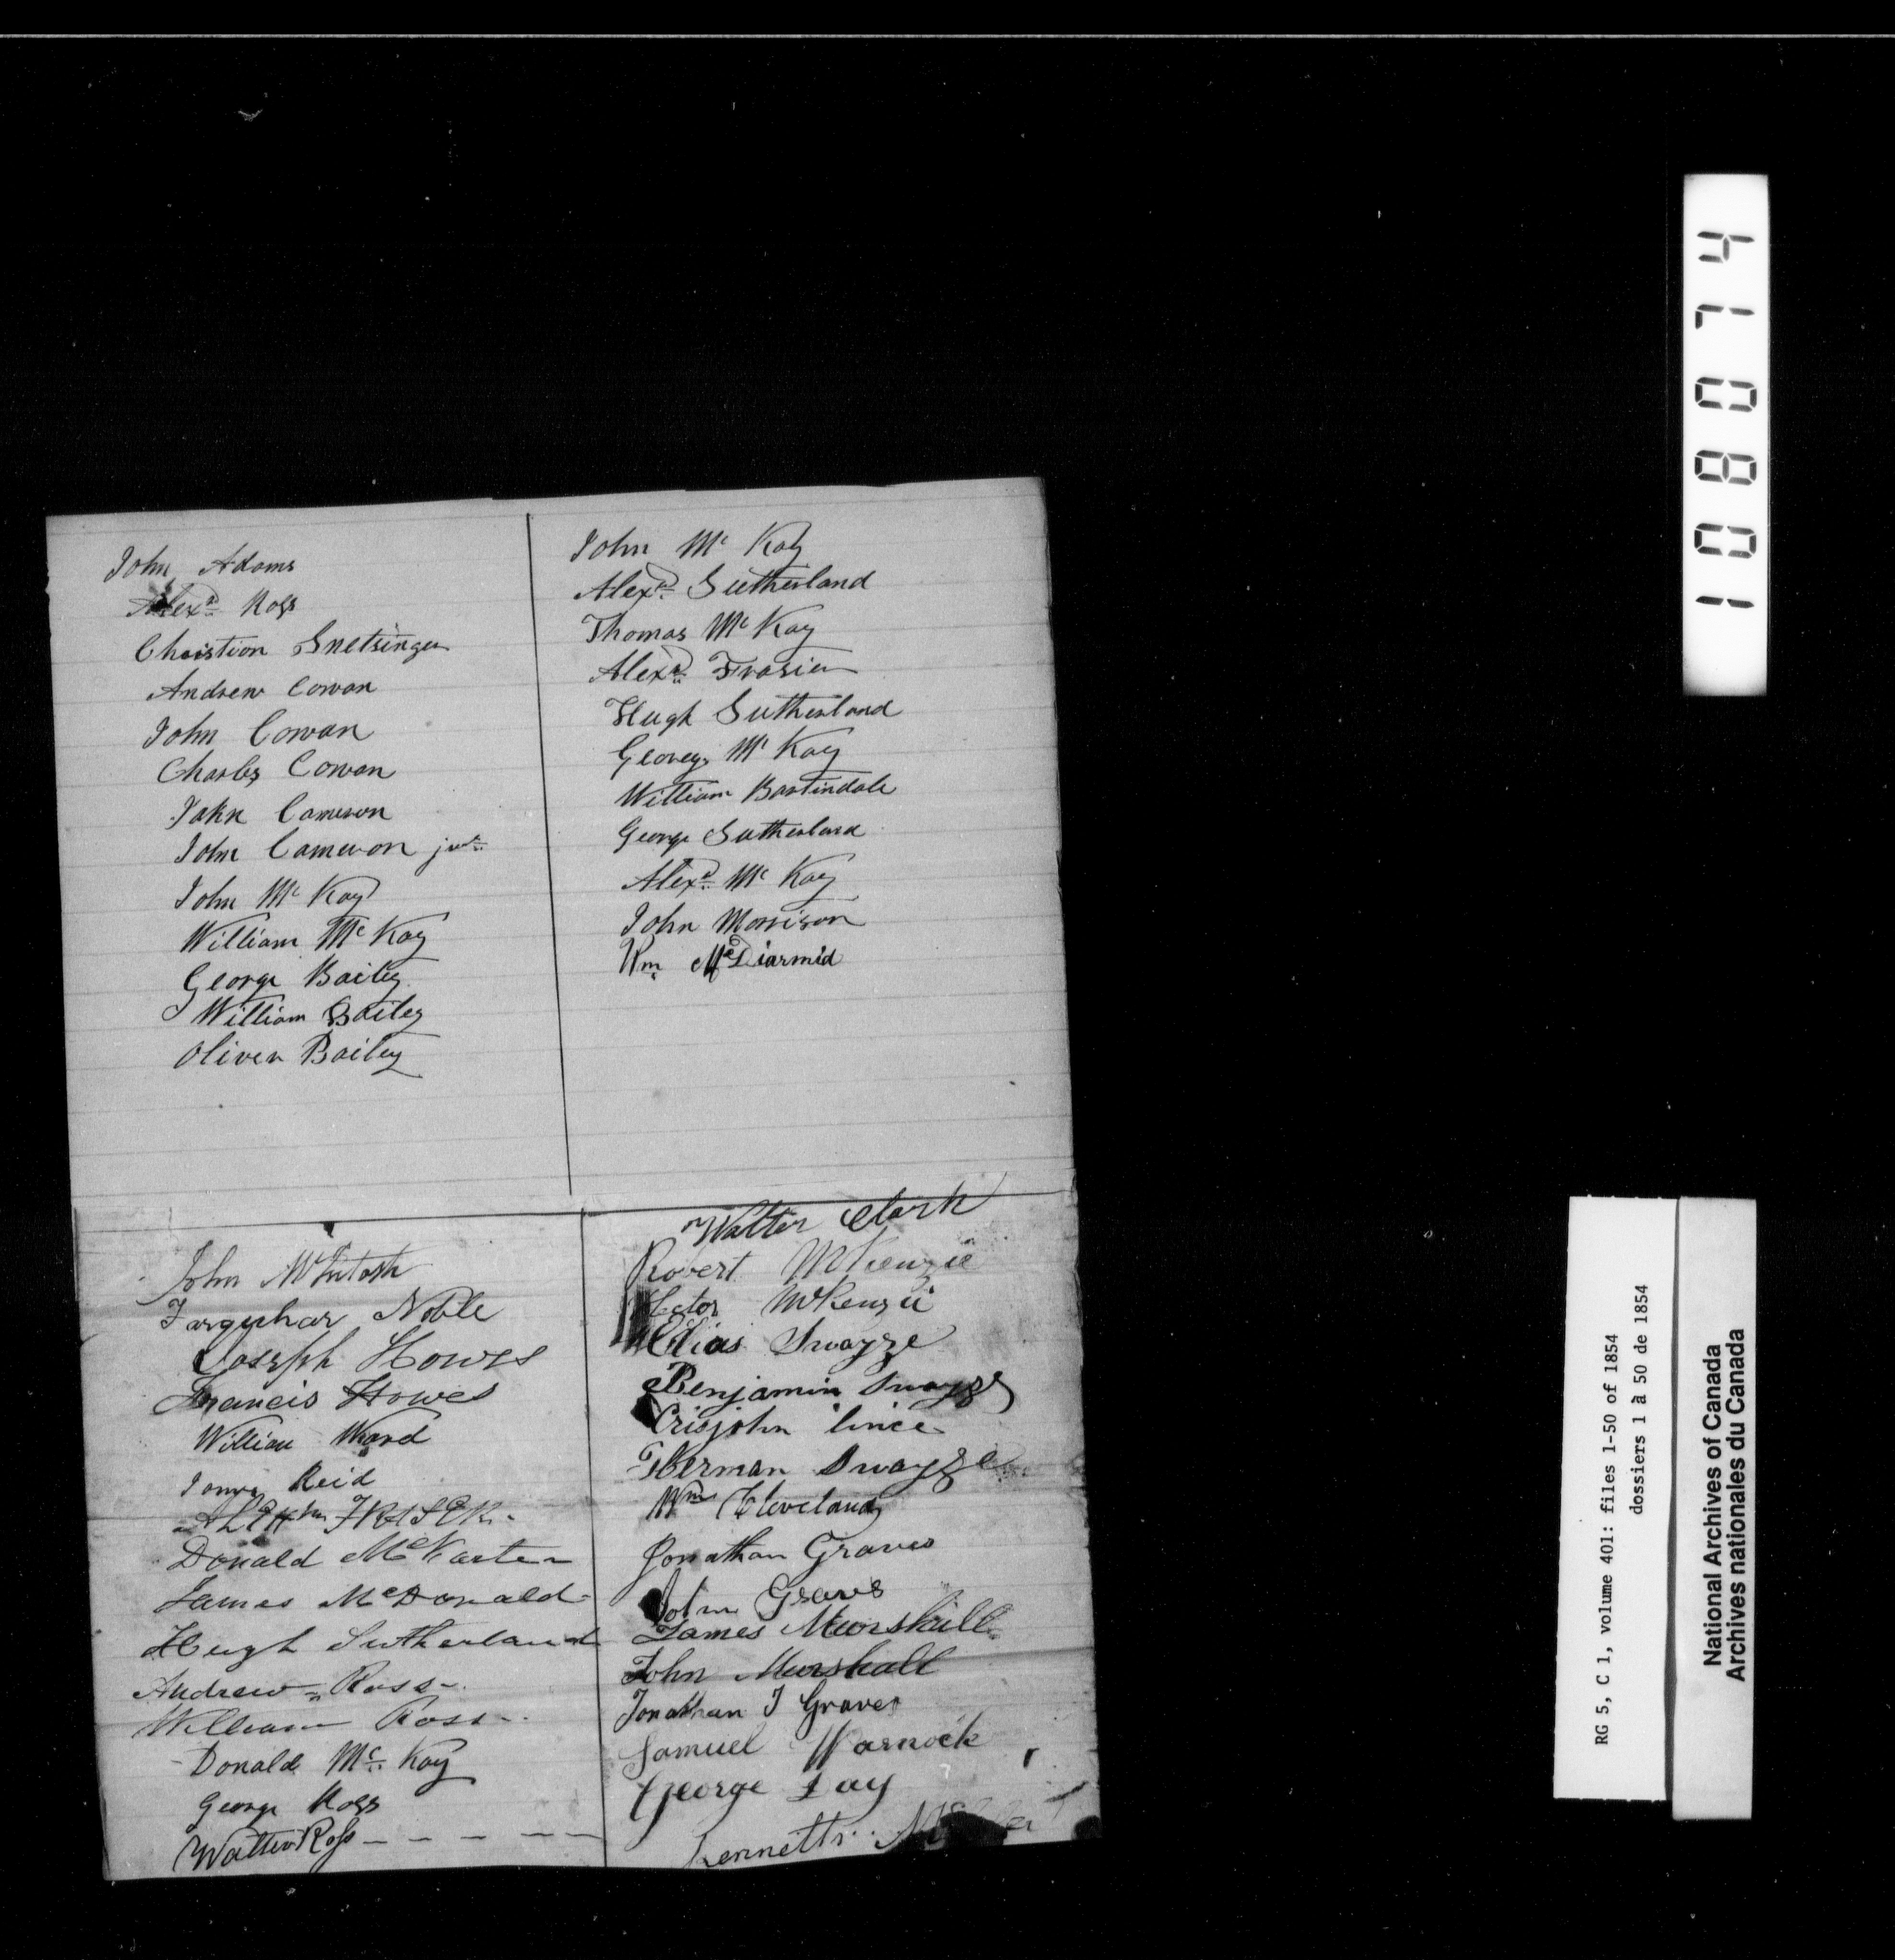 John Adams
Alexd Ross
Christion Snetsinger
Andrew Cowan
John Cowan
Charles Cowan
John Cameron
John Cameron junr
John Mc Kay
William Mc Kay
George Bailey
William Bailey
Oliver Bailey
John Mc Kay
Alexd Sutherland
Thomas Mc Kay
Alexd Frasier
Hugh Sutherland
George Mc Kay
William Bartindale
George Sutherland
Alexd Mc Kay
John Morrison
Wm McDiarmid
John McIntosh
Farquhar Noble
Joseph Howes
Francis Howes
William Ward
James Reid
Donald Mc
James McDonald
Hugh Sutherland
Andrew Ross
William Ross
Donald Mc Kay
George Ross
Walter Ross
Walter Clark
Robert McKenzie
Hector McKenzie
Elias Swayze
Benjamin Swayze
Crisjohn
Herman Swayze
Wm Cleveland
Jonathan Graves
John Graves
James Marshall
John Marshall
Jonathan J Graves
Samuel Warnock
George Day
1080714
RG 5, C 1, volume 401: files 1-50 of 1854
dossiers 1 à 50 de 1854
National Archives of Canada
Archives nationales du Canada